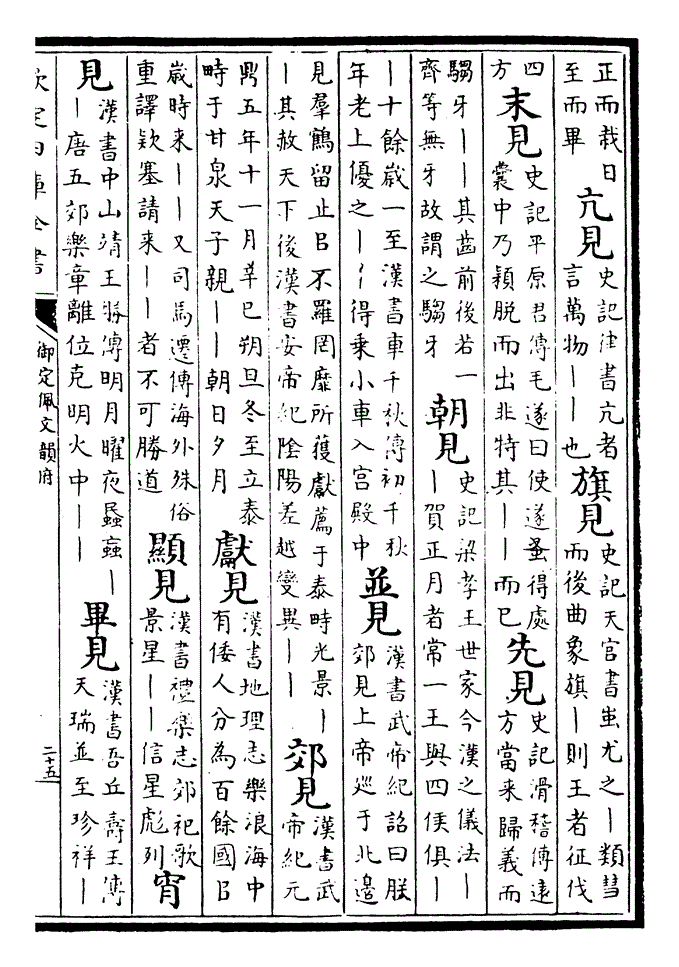 正而栽日
至而畢
亢見
史記律書亢者
言萬物——也
旗見
史記天官書蚩尤之—類彗
而後曲象旗—則王者征伐
四
方
末見
史記平原君傳毛遂曰使遂蚤得處
囊中乃穎脱而出非特其——而已
先見
史記滑稽傳遠
方當来歸義而
騶牙——其齒前後若一
齊等無牙故謂之騶牙
朝見
史記梁孝王世家今漢之儀法—
—賀正月者常一王與四侯俱—
—十餘歲一至漢書車千秋傳初千秋
年老上優之——得乗小車入宫殿中
並見
漢書武帝紀詔曰朕
郊見上帝廵于北邉
見羣鶴留止㠯不羅罔靡所獲獻薦于泰時光景—
—其赦天下後漢書安帝紀陰陽差越變異——
郊見
漢書武
帝紀元
鼎五年十一月辛巳朔旦冬至立泰
時于甘泉天子親——朝日夕月
獻見
漢書地理志樂浪海中
有倭人分為百餘國㠯
歲時来——又司馬遷傳海外殊俗
重譯欵塞請来——者不可勝道
顯見
漢書禮樂志郊祀歌
景星——信星彪列
宵
見
漢書中山靖王勝傳明月曜夜蟁蝱—
—唐五郊樂章離位克明火中——
畢見
漢書吾丘壽王傳
天瑞並至珍祥—
欽定四庫全書
御定佩文韻府
二十五